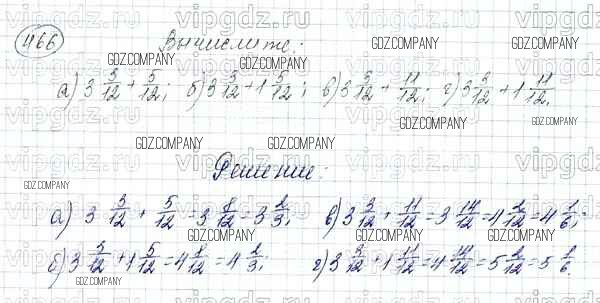 466
Вычислите:
а) 3 3/12 + 5/12; б) 3 3/12 + 1 5/12; в) 3 3/12 + 11/12; г) 3 3/12 + 1 11/12.
Решение:
а) 3 3/12 + 5/12 = 3 8/12 = 3 2/3; в) 3 3/12 + 11/12 = 3 14/12 = 4 2/12 = 4 1/6;
б) 3 3/12 + 1 5/12 = 4 8/12 = 4 2/3; г) 3 3/12 + 1 11/12 = 4 14/12 = 5 2/12 = 5 1/6
vipgdz.ru
GDZ.COMPANY